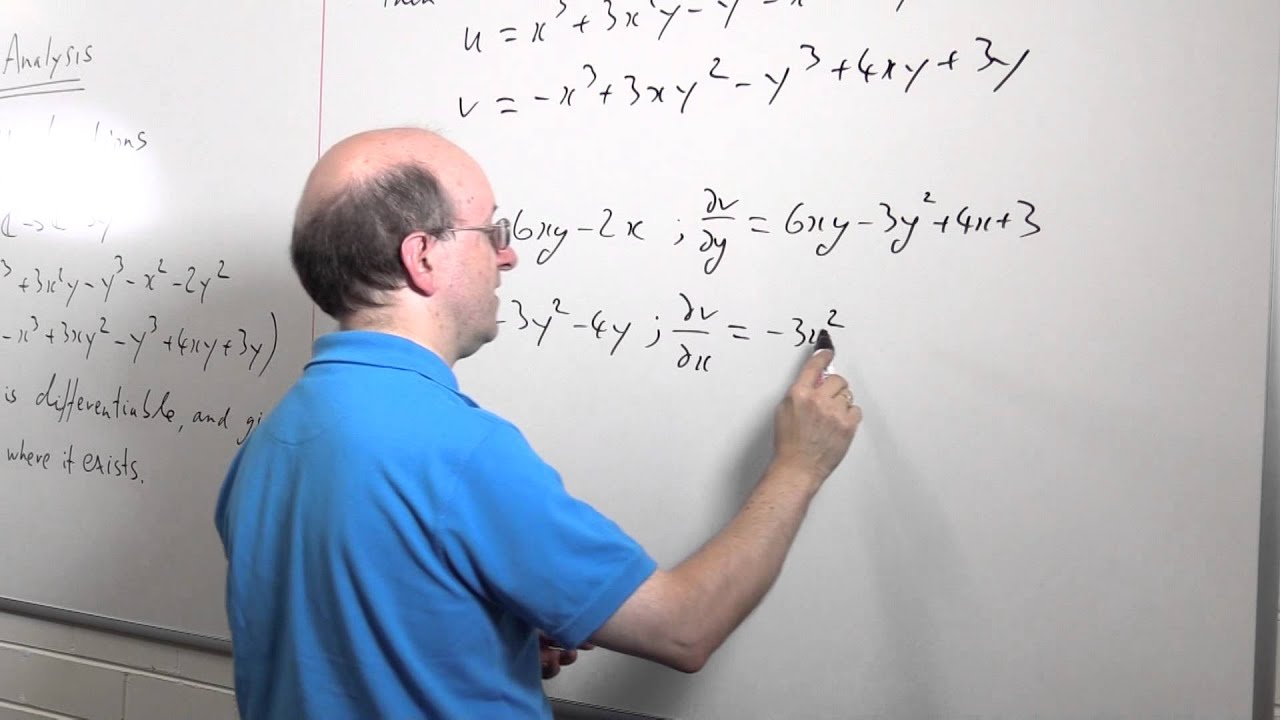 Analysis
³ + 3x²y - y³ - x² - 2y²
- x³ + 3xy² - y³ + 4xy + 3y)
is differentiable, and
where it exists.
Then
u = x³ + 3x²y - y
v = -x³ + 3xy² - y³ + 4xy + 3y
6xy - 2x ; ∂v/∂y = 6xy - 3y² + 4x + 3
3y² - 4y ; ∂v/∂x = -3x²